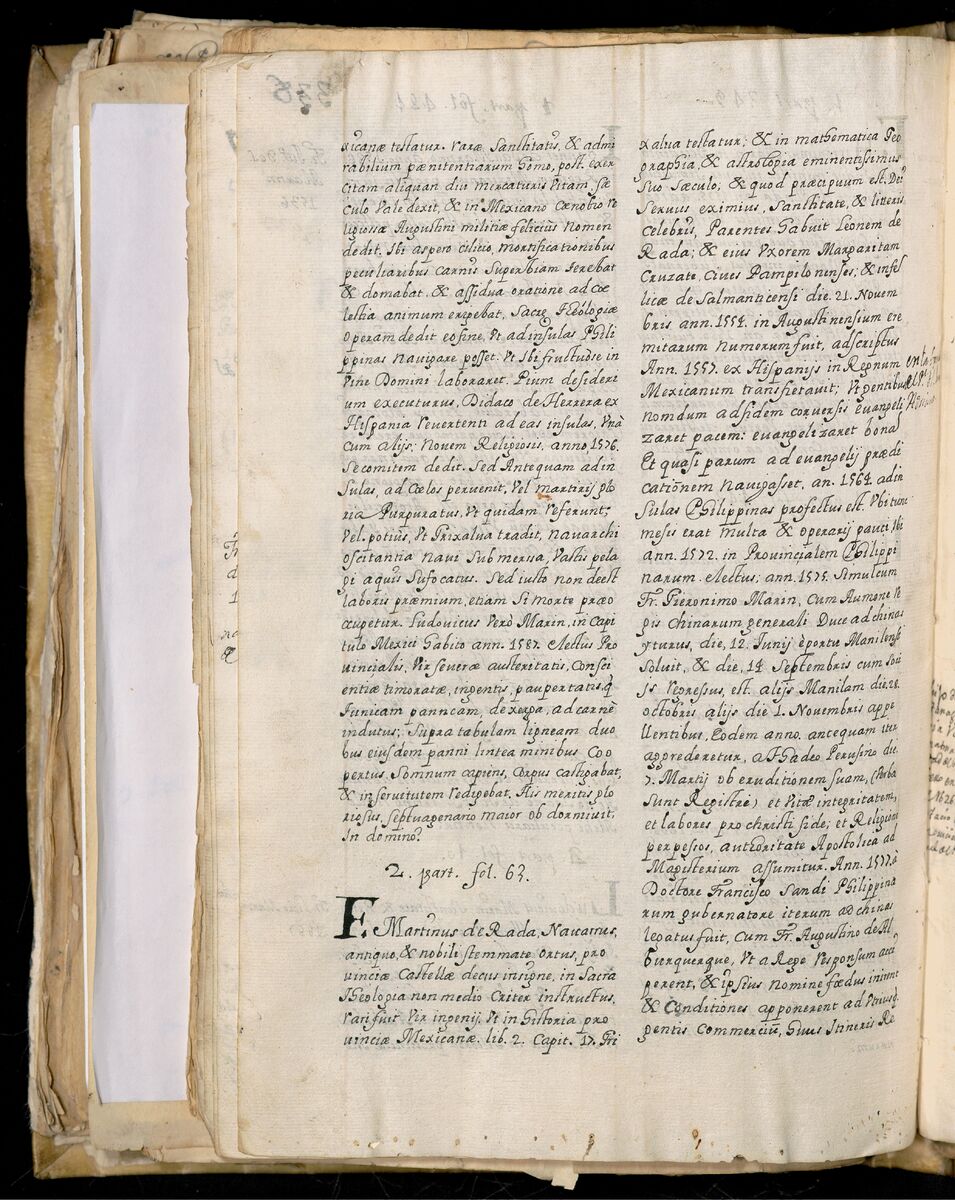 xicanæ testatur. raræ Sanctitatis, & admi
rabilium pænitentiarum homo, post exer
citam aliquan diu mercaturis vitam, sæ
culo Vale dexit, & in Mexicano Cœnobio re
ligiossæ Augustini militiæ felicius nomen
dedit. Ibi aspero cilitio, mortificationibus
peculiaribus carnis Superbiam terebat
& domabat. & assidua oratione ad cœ
lestia animum erigebat. Sacre Theologiæ
Operam dedit eo fine, Vt ad insulas Phili
ppinas navigare posset. Vt Ibi fructuose in
Vine Domini laboraret. Pium desideri
um executurus, Didaco de Herrera ex
Hispania revertenti ad eas insulas, Vnà
cum alijs; novem Religiosis, anno, 1576.
Se comitem dedit. Sed Antequam ad in
sulas, ad Cœlos pervenit, Vel martirij glo
ria Purpuratus, Vt quidam referunt;
Vel potius, Vt Grixalua tradit, navarchi
oscitantia navi Submersa, Vastis pela
gi aquis sufocatus. Sed iusto non deest
laboris præmium, etiam Si morte præo
cupetur. Ludovicus Verò Marin, in Capi
tulo Mexici habito ann. 1587. electus Pro
vincialis, Vir severæ austeritatis, Consci
entiæ timoratæ, ingentis paupertatis, q̃
tunicam panneam, de xerga, ad carnē
indutus; supra tabulam ligneam duo
bus eiusdem panni linteaminibus Coo
pertus, Somnum capiens, corpus castigabat,
& in servitutem redigebat. His meritis glo
riosus, septuagenario maior obdormivit
In domino.
2. part. fol. 63.
F. Martinus de Rada, Navarrus,
antiquo, & nobili stemmate ortus, pro
vinciæ Castellæ decus insigne, in Sacra
Theologia non mediocriter instructus,
rari fuit Vir ingenij, Vt in Historia pro
vinciæ Mexicanæ. lib. 2. Capit. 17. Gri
xalua testatur; & in mathematica Geo
graphia, & astrologia eminentissimus
Suo Sæculo; & quod præcipuum est. Dei
Servus eximius, Sanctitate, & litteris
celebris, Parentes habuit Leonem de
Rada; & eius Vxorem Margaritam
Cruzate, Cives Pampilonenses; & infe
licæ de Salmanticensi die. 21. Novem
bris ann. 1554. in Augustinensium ere
mitarum numerum fuit, adscriptus
Ann. 1557. ex Hispanijs in Regnum
Mexicanum transfretavit; Vt gentibus
nomdum ad fidem conversis evangeli
zaret pacem: evangelizaret bona
Et quasi parum ad evangelij prædi
cationem navigasset, an. 1564. ad in
sulas Philippinas profectus est. Vbi tunc
mesis erat multa & operarij pauci, Ibi
ann. 1572. in Provincialem Philippi
narum electus; ann. 1575. Simul cum
Fr. Hieronimo Marin, Cum Aumone re
gis Chinarum generali Duce ad chinas
yturus, die, 12. Junij è portu Manilensi
Soluit, & die, 14 Septembris cum soci
js regressus, est. alijs Manilam die. 28.
octobris alijs die 1. Novembris appe
llentibus. Eodem anno. antequam iter
aggrederetur, a Thadeo Perusino die
7. Martij ob eruditionem suam, (Verba
Sunt Registri) et Vitæ integritatem,
et labores pro christi fide; et Religione
perpessos, authoritate Apostolica ad
Magisterium assumitur. Ann. 1577. à
Doctore Francisco Sandi Philippina
rum gubernatore iterum ad chinas
legatus fuit, Cum Fr. Augustino de Al
burquerque, Vt a Rege responsum acci
perent, & ipsius nomine fœdus inirent
& Conditiones apponerent ad Vtriusq
gentis Commerciū, huius Itineris Re